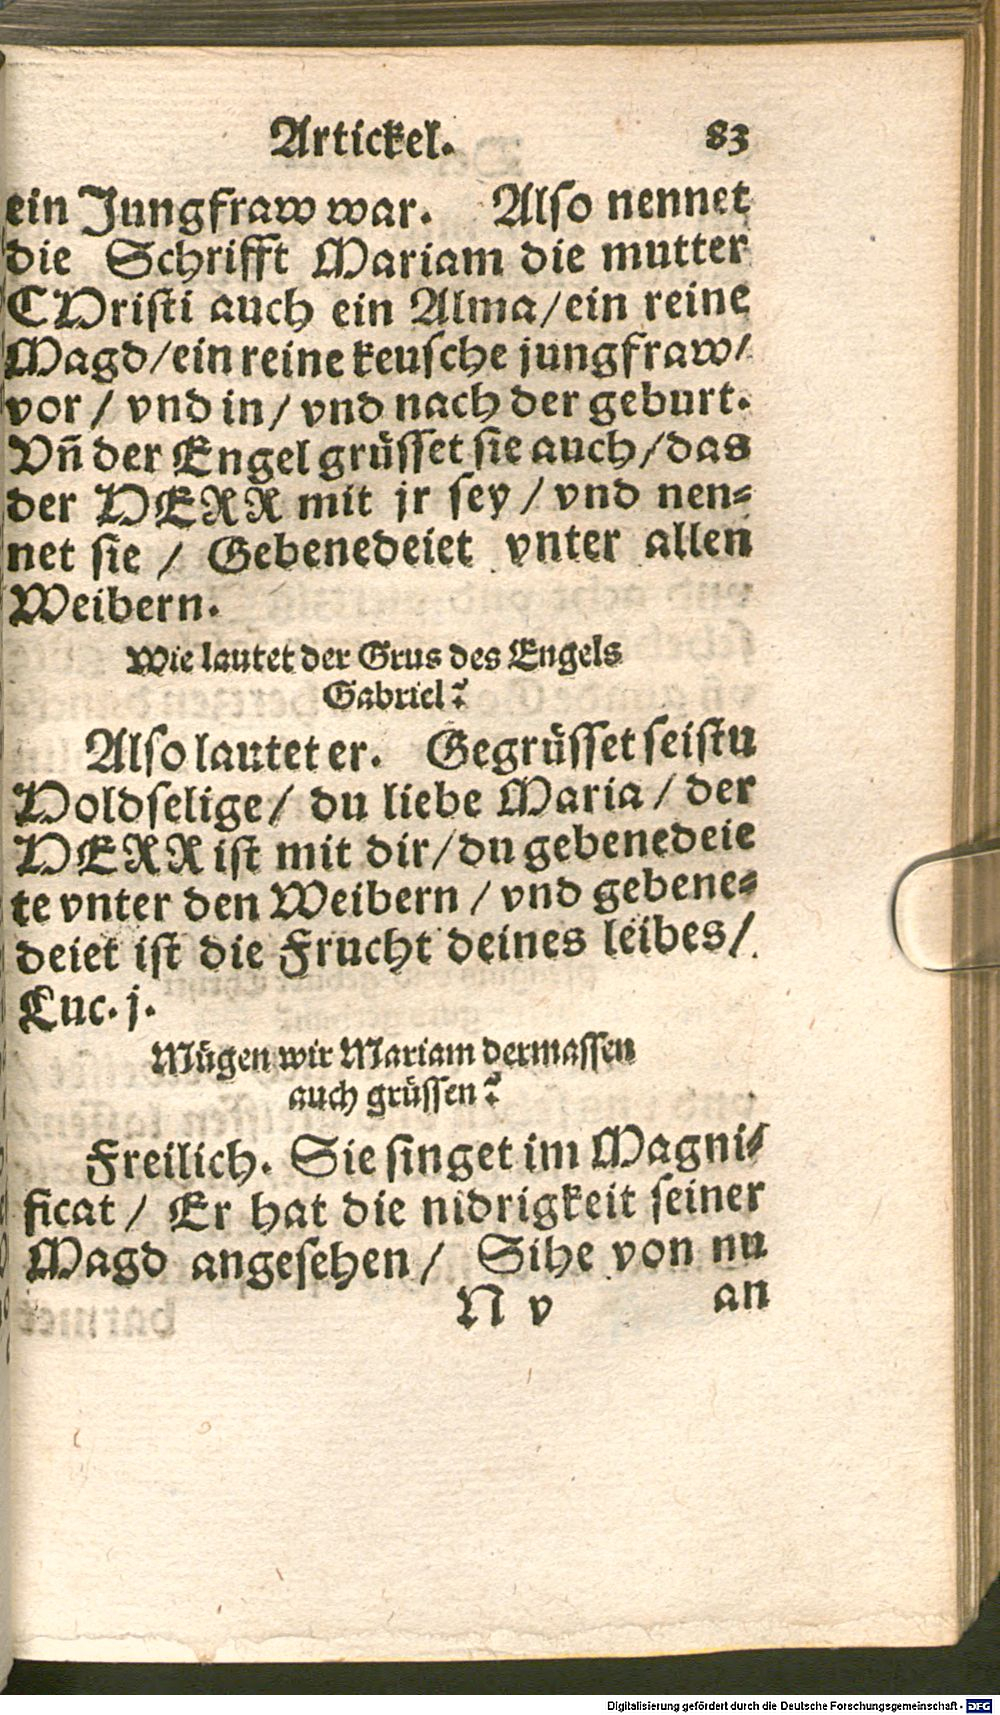 Artickel. 83
ein Jungfraw war. Also nennet
die Schrifft Mariam die mutter
CHristi auch ein Alma/ein reine
Magd/ein reine keusche jungfraw/
vor / vnd in / vnd nach der geburt.
Vñ der Engel grüsset sie auch/das
der HERR mit jr sey / vnd nen-
net sie / Gebenedeiet vnter allen
Weibern.
Wie lautet der Grus des Engels
Gabriel?
Also lautet er. Gegrüsset seistu
Holdselige / du liebe Maria / der
HERR ist mit dir/du gebenedeie
te vnter den Weibern / vnd gebene-
deiet ist die Frucht deines leibes/
Luc. j.
Mügen wir Mariam dermassen
auch grüssen?
Freilich. Sie singet im Magni-
ficat / Er hat die nidrigkeit seiner
Magd angesehen / Sihe von nu
N v an
Digitalisierung gefördert durch die Deutsche Forschungsgemeinschaft - DFG